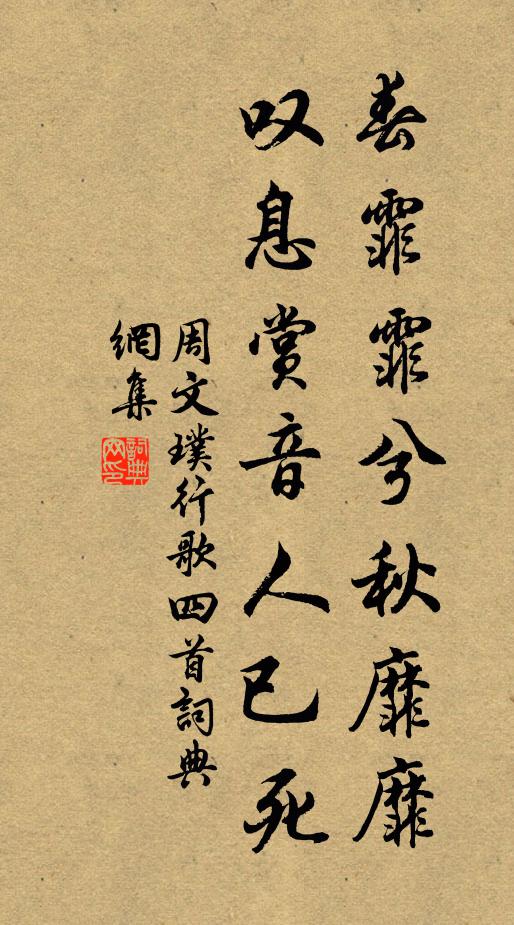 春霏霏兮秋靡靡
叹息赏音人已死
周文璞行歌四首詞典
網集
詞典網印